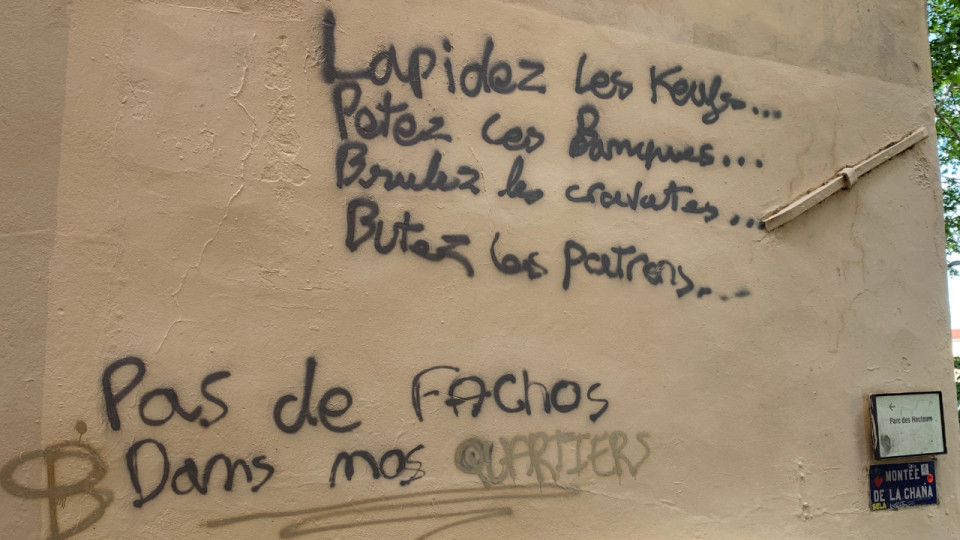 Lapidez les Keufs...
Petez les Banques...
Brulez les cravates...
Butez les patrons...
Pas de FAchos
Dans nos QUARTIERS
←
Parc des Hauteurs
MONTÉE
DE LA CHANA